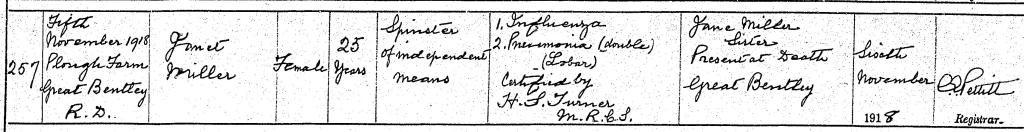 257
Fifth
November 1918
Plough Farm
Great Bentley
R.D.
Janet
Miller
Female
25
Years
Spinster
of independent
means
1. Influenza
2. Pneumonia (double)
(Lobar)
Certified by
H. S. Turner
M.R.C.S.
Jane Miller
Sister
Present at Death
Great Bentley
Sixth
November
1918
Pettitt
Registrar.